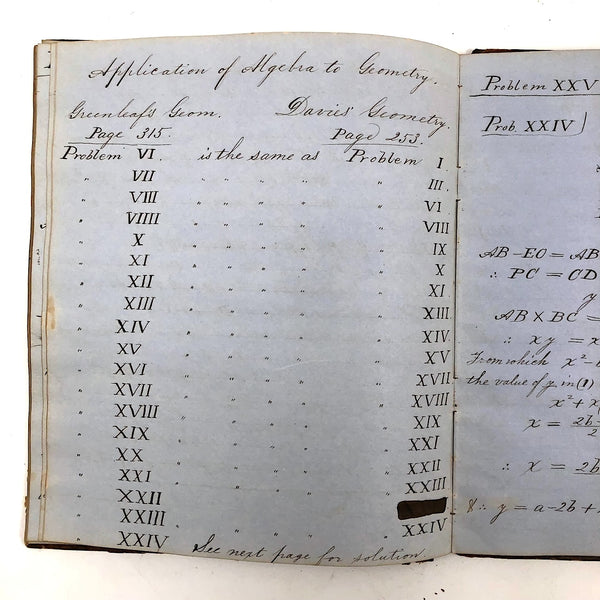 Application of Algebra to Geometry.
Greenleaf's Geom. Davies' Geometry.
Page 315. Page 253.
Problem VI is the same as Problem I.
" VII " " " " " III.
" VIII " " " " " VI
" VIIII " " " " " VIII
" X " " " " " IX
" XI " " " " " X
" XII " " " " " XI
" XIII " " " " " XIII.
" XIV " " " " " XIV.
" XV " " " " " XV
" XVI " " " " " XVII
" XVII " " " " " XVIII
" XVIII " " " " " XIX
" XIX " " " " " XXI
" XX " " " " " XXII
" XXI " " " " " XXIII
" XXII
" XXIII " " " " " XXIV
" XXIV See next page for solution.
Problem XXV
Prob. XXIV)
AB – EO = AB
∴ PC = CD
y
AB × BC =
∴ xy = x
From which x² -
the value of y in (1)
x² + x
x = 2b-
2
∴ x = 2b
& ∴ y = a - 2b +